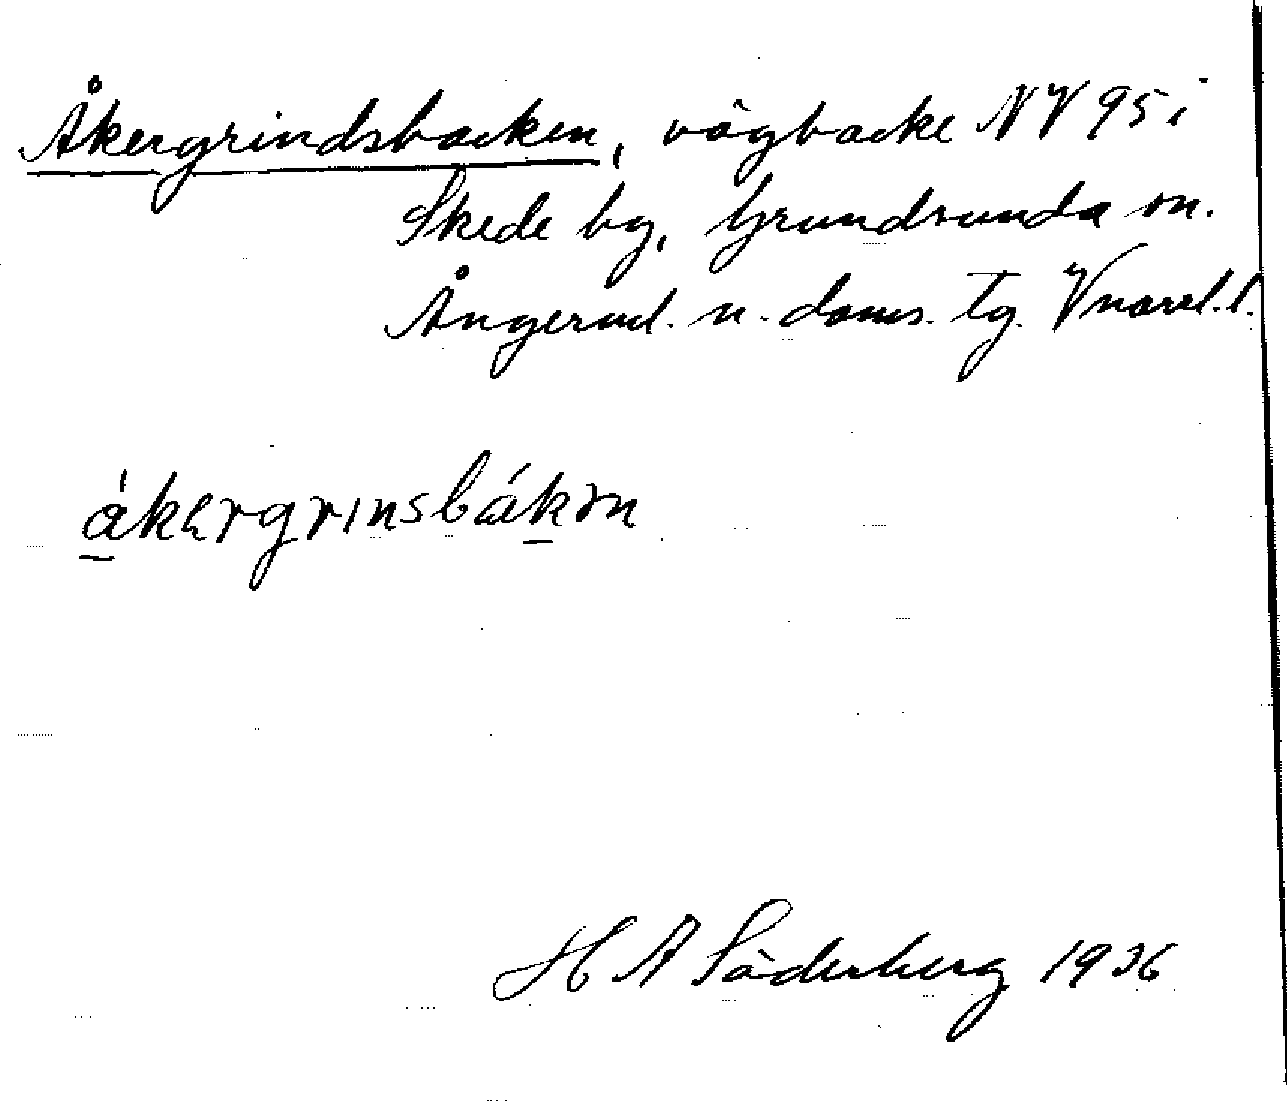 Åkergrindsbacken, vägbacke NV 95 i
Skede by, Grundsunda sn.
Ångerml. n. doms. tg. Vnorrl. l.
åkergrinsbákən
H A Söderberg 1936